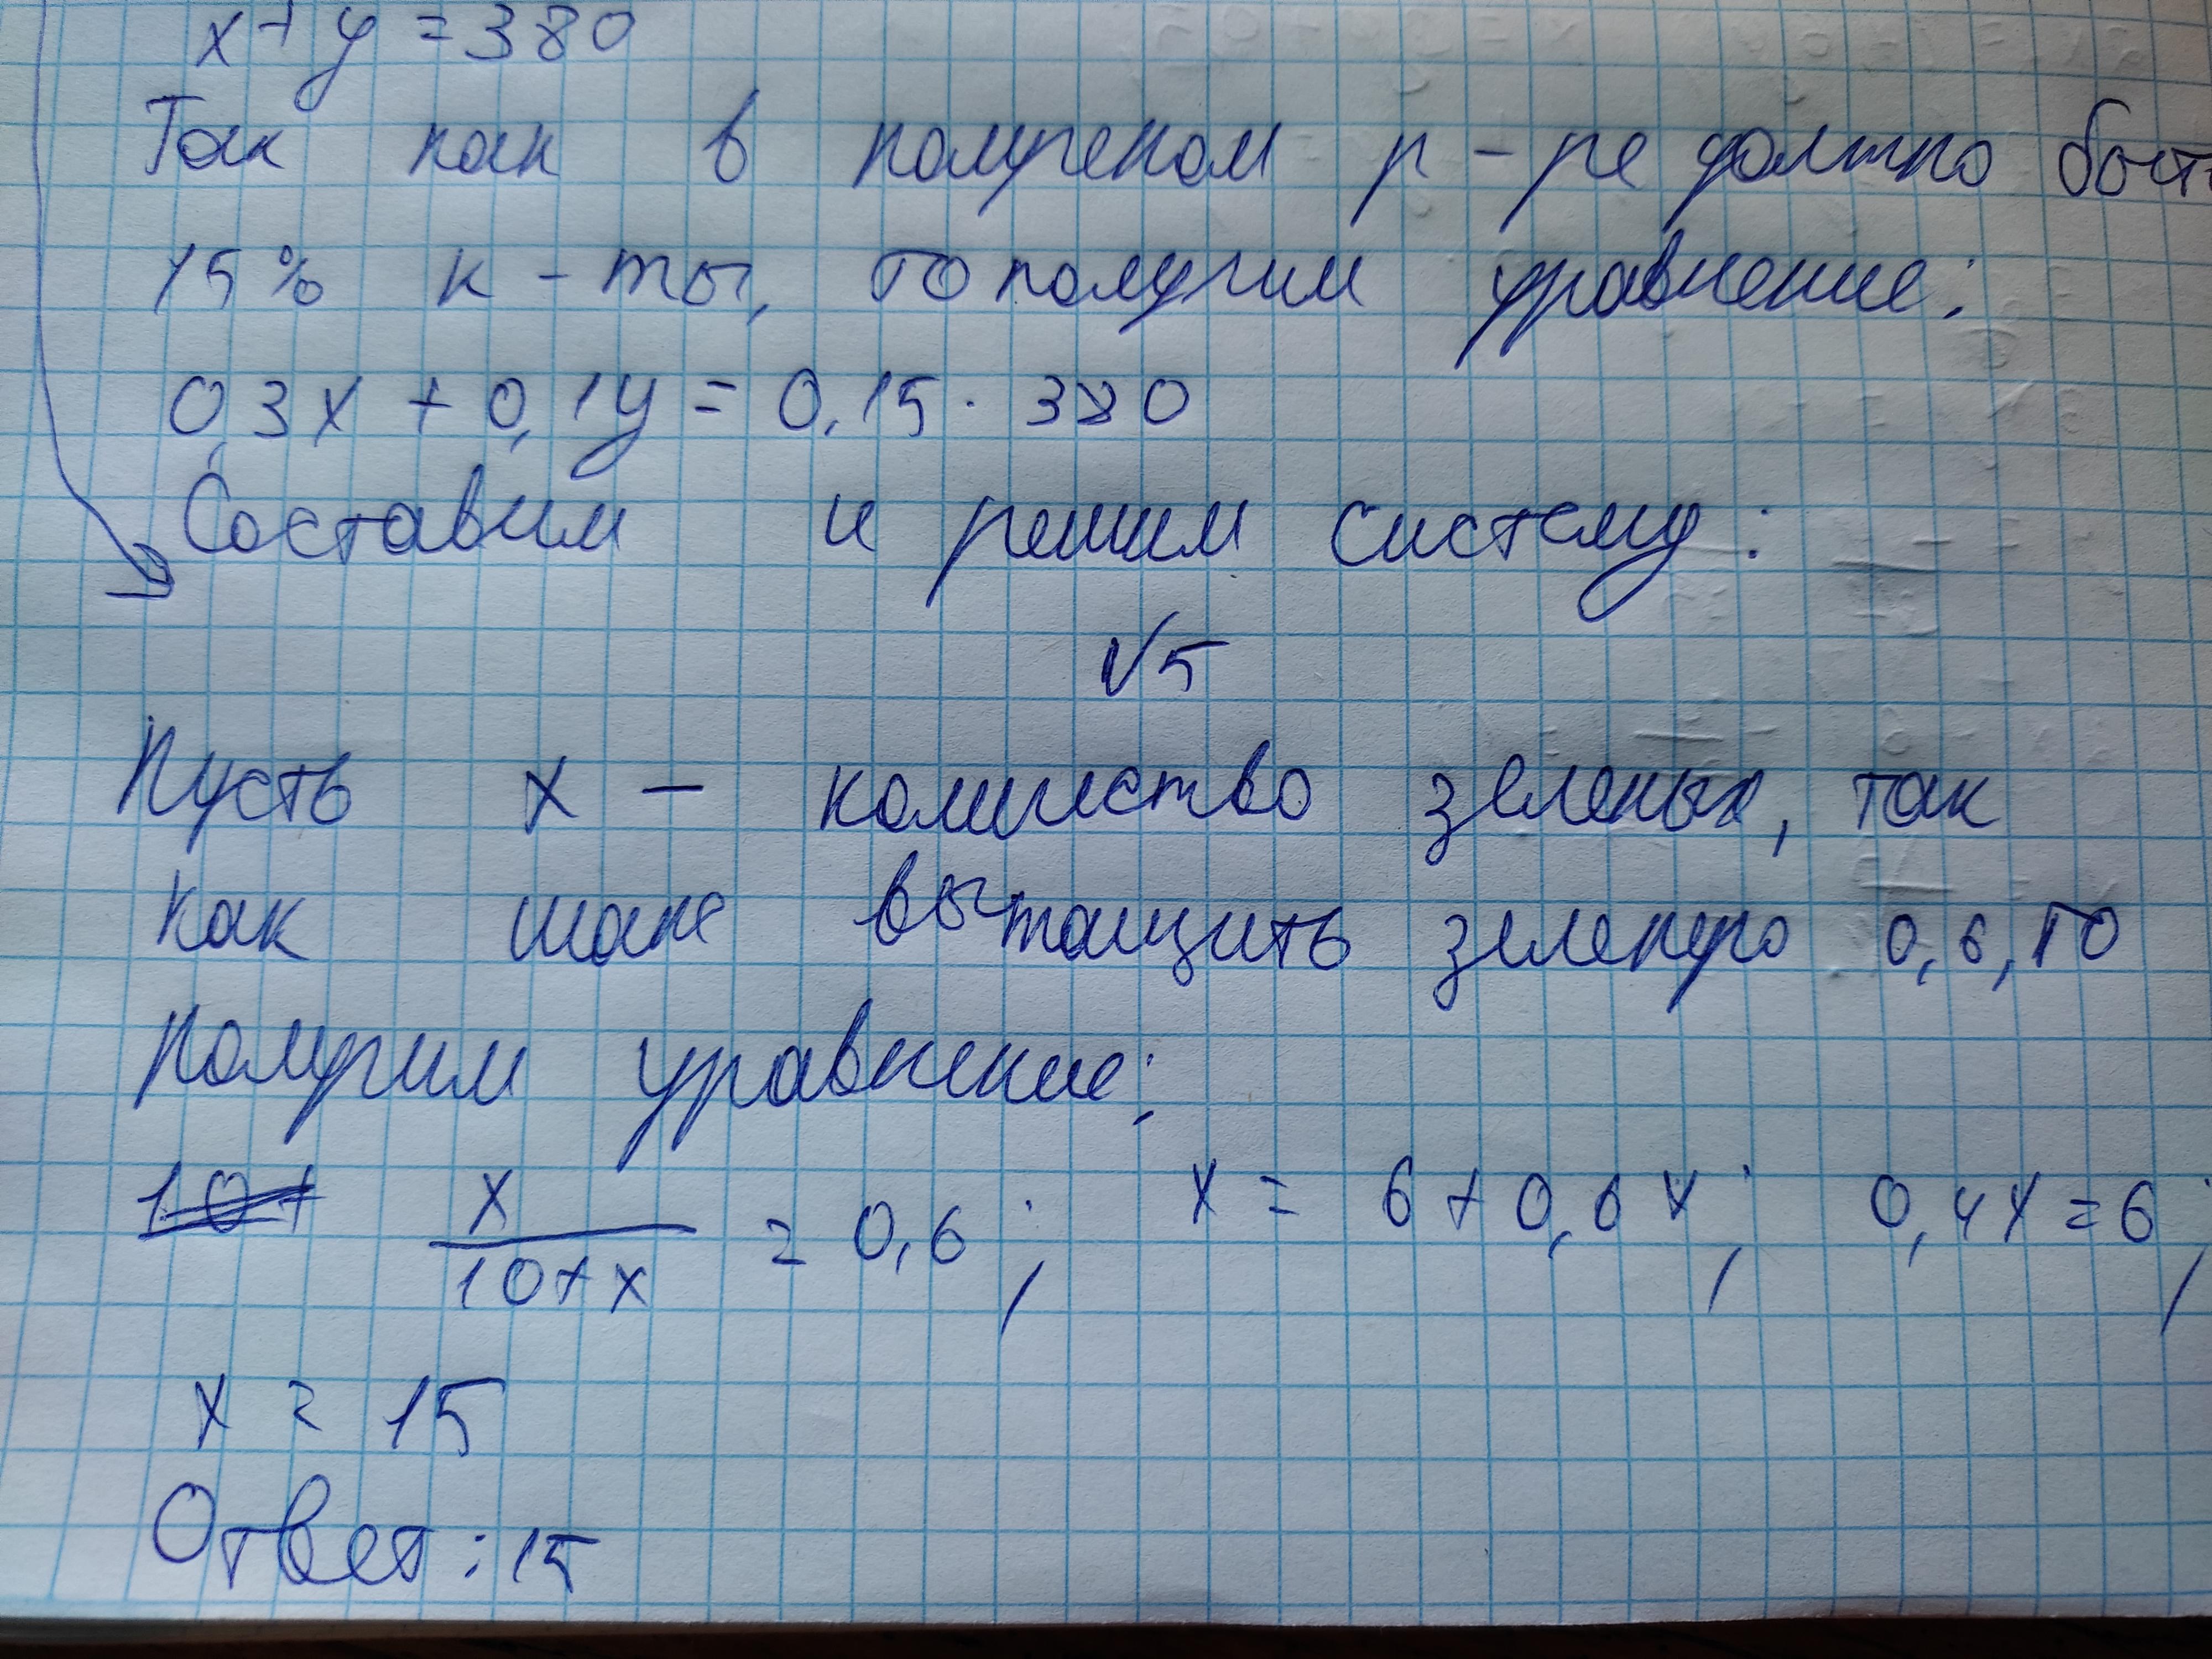 x + y = 380
Так как в полученом р-ре должно быть
15% к-ты, то получим уравнение:
0,3x + 0,1y = 0,15 · 380
Составим и решим систему:
√5
Пусть x — количество зеленых, так
как шанс вытащить зеленую 0,6, то
получим уравнение:
10+ x/(10+x) = 0,6; x = 6 + 0,6x; 0,4x = 6;
x = 15
Ответ: 15